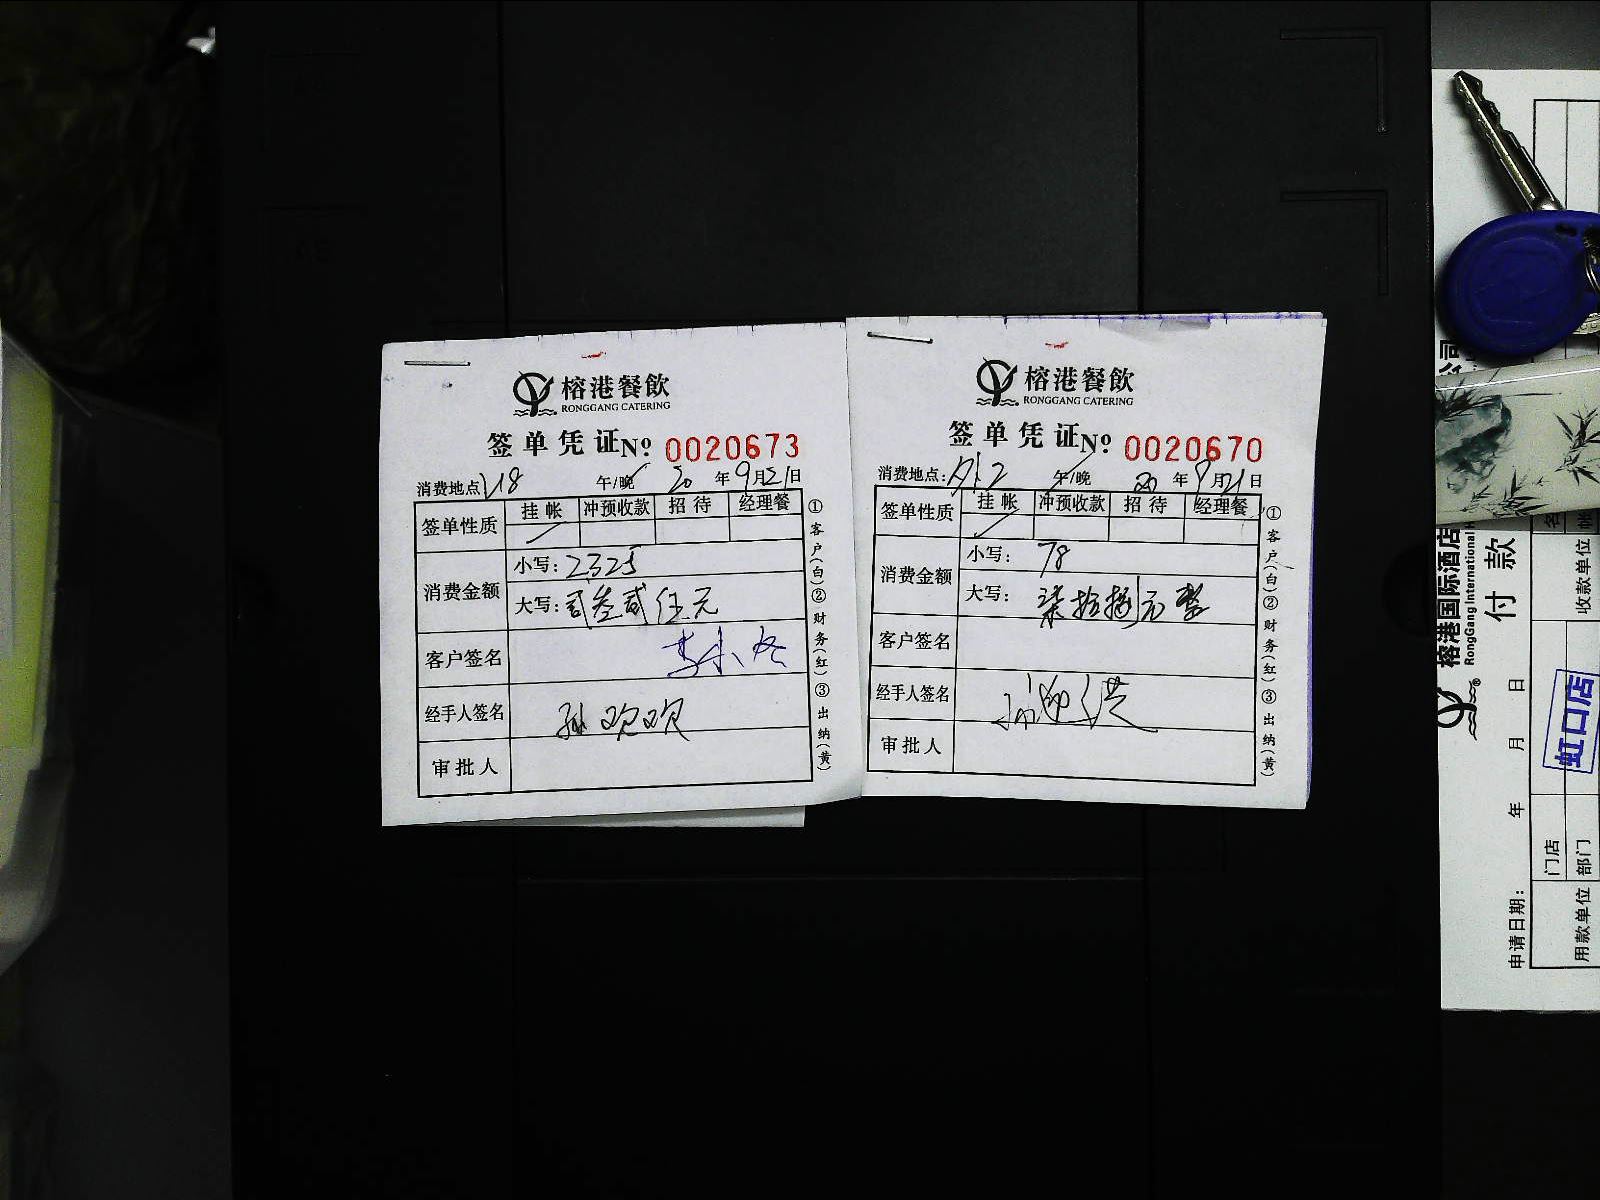 榕港餐飲
RONGGANG CATERING
签单凭证 No 0020673
消费地点: V18 午/晚 20 年 9 月 21 日
签单性质 挂帐 冲预收款 招待 经理餐
消费金额
小写: 2325
大写: 贰叁贰伍元
客户签名
经手人签名 孙欢欢
审批人
①客户(白)②财务(红)③出纳(黄)
榕港餐飲
RONGGANG CATERING
签单凭证 No 0020670
消费地点: 外2 午/晚 20 年 9 月 21 日
签单性质 挂帐 冲预收款 招待 经理餐
消费金额
小写: 78
大写: 柒拾捌元整
客户签名
经手人签名
审批人
①客户(白)②财务(红)③出纳(黄)
榕港国际酒店
RongGang International H
公司
付款
申请日期: 年 月 日
门店 虹口店
部门
用款单位
收款单位
名
帐